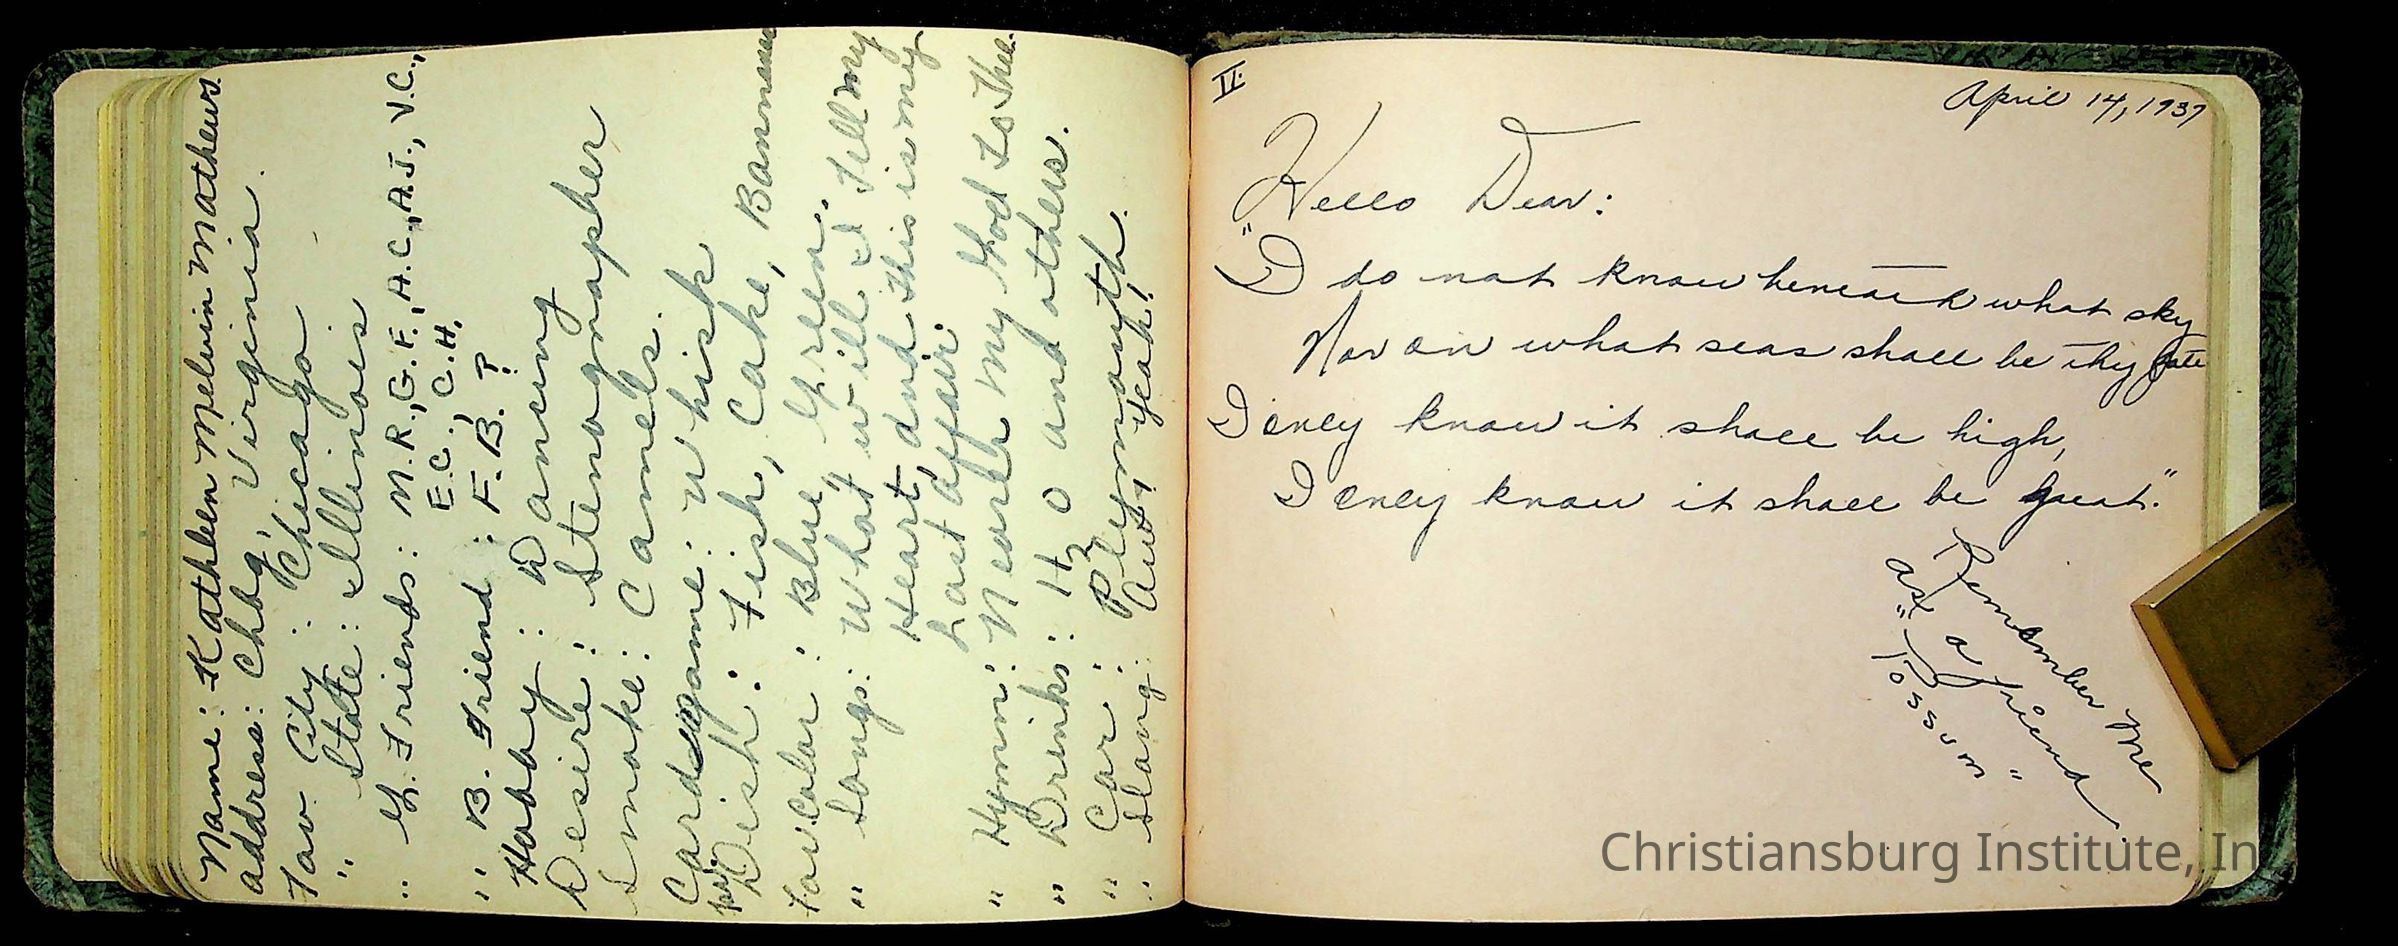 Name: Kathleen Melvin Mathews.
Address: Chbg, Virginia.
Fav. City: Chicago
" State: Illinois
" G. Friends: M.R., G.F., A.C., A.J., V.C.,
E.C., C.H.
" B. Friend: F.B.?
Hobby: Dancing
Desire: Stenographer
Smoke: Camels.
Card game: Whisk
Fav. Dish: Fish, Cake, Bannanas
Fav. Color: Blue, Green.
" Songs: What will I Tell my
Heart, and This is my
Last Affair.
" Hymn: Nearer My God To Thee.
" Drinks: H2O and others.
" Car: Plymouth.
" Slang: Aw, yeah!
II.
April 14, 1937
Hello Dear:
"I do not know beneath what sky
Nor on what seas shall be thy fate
I only know it shall be high,
I only know it shall be great."
Remember Me
as a friend
"Possum"
Christiansburg Institute, In